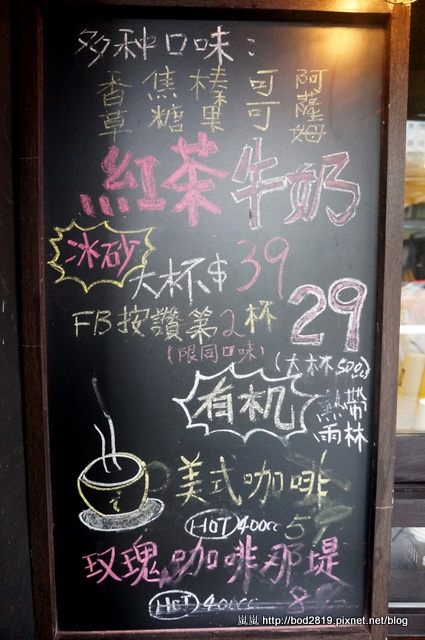 多种口味：
香草 焦糖 榛果 可可 阿薩姆
紅茶牛奶
冰砂 大杯$39
FB按讚第2杯 29
(限同口味) (大杯500cc)
有机 熱帶雨林
美式咖啡
HOT 400cc
玫瑰咖啡那堤
HOT 400cc
嵐嵐 http://bod2819.pixnet.net/blog